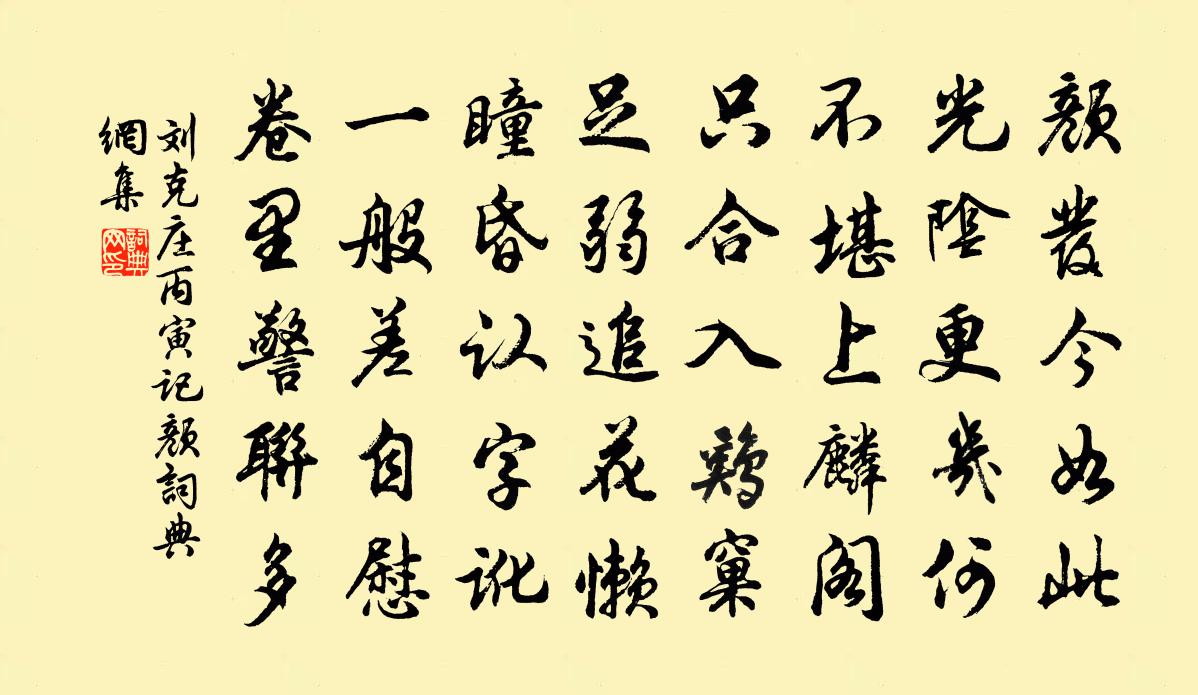 颜發今如此
光陰更幾何
不堪上麟阁
只合入鷄窠
足弱追花懒
瞳昏认字讹
一般差自慰
卷里警聯多
刘克庄丙寅记颜詞典
網集
詞典
网印